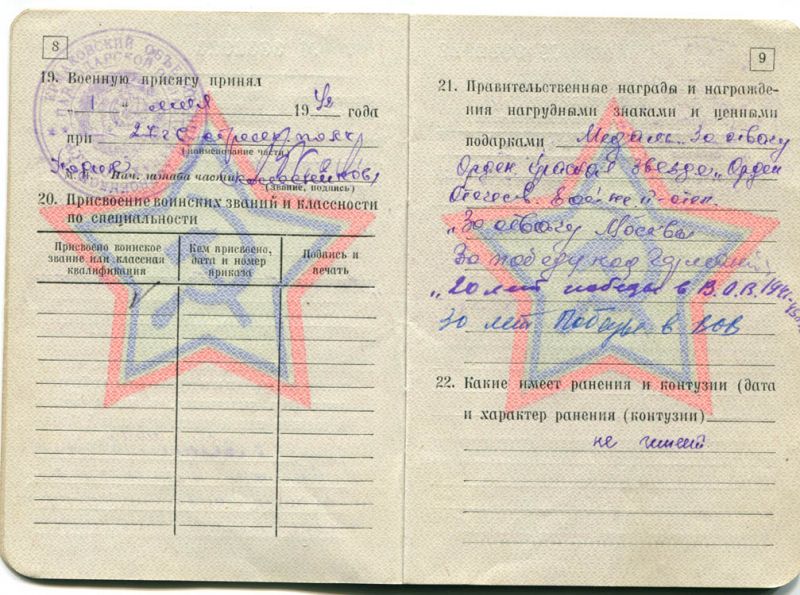 8
19. Военную присягу принял
„ 1 " мая 19 42 года
при
(наименование части)
Нач. штаба части
(звание, подпись)
20. Присвоение воинских званий и классности
по специальности
Присвоено воинское
звание или классная
квалификация
Кем присвоено,
дата и номер
приказа
Подпись и
печать
9
21. Правительственные награды и награжде-
ния нагрудными знаками и ценными
подарками Медаль „За отвагу
Орден Красная Звезда„ Орден
Отечеств. Войны II-степ.
„За оборону Москвы
За победу над Германией
„20 лет победы в В.О.В. 1941-45
30 лет Победы в ВОВ
22. Какие имеет ранения и контузии (дата
и характер ранения (контузии)
не имеет